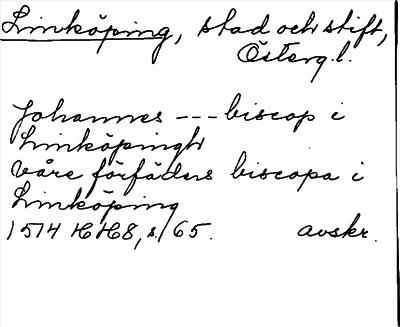 Linköping, stad och stift,
Österg.l.
Johannes --- biscop i
Linköpingh
våre förfäders biscopa i
Linköping
1514 HH8, s. 65. avskr.